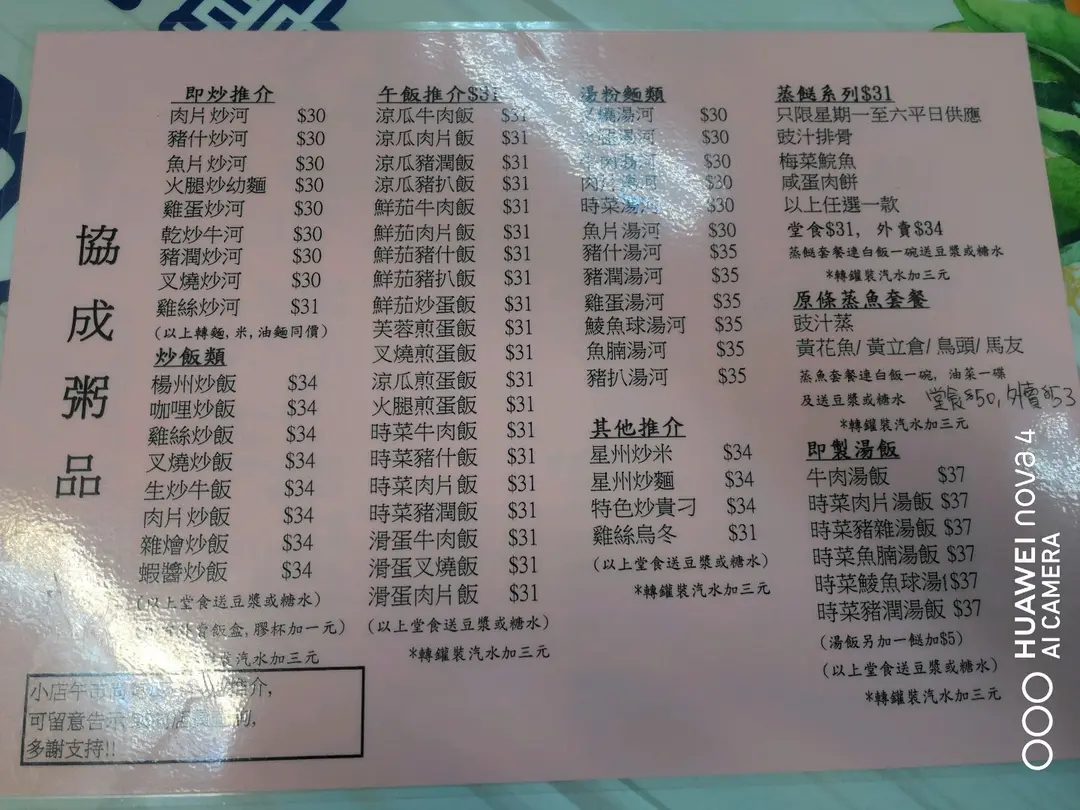 協成粥品
即炒推介
肉片炒河 $30
豬什炒河 $30
魚片炒河 $30
火腿炒幼麵 $30
雞蛋炒河 $30
乾炒牛河 $30
豬潤炒河 $30
叉燒炒河 $30
雞絲炒河 $31
(以上轉麵,米,油麵同價)
炒飯類
楊州炒飯 $34
咖哩炒飯 $34
雞絲炒飯 $34
叉燒炒飯 $34
生炒牛飯 $34
肉片炒飯 $34
雜燴炒飯 $34
蝦醬炒飯 $34
(以上堂食送豆漿或糖水)
飯盒,膠杯加一元)
汽水加三元
小店午市
推介,
可留意告示
多謝支持!!
午飯推介$31
涼瓜牛肉飯 $31
涼瓜肉片飯 $31
涼瓜豬潤飯 $31
涼瓜豬扒飯 $31
鮮茄牛肉飯 $31
鮮茄肉片飯 $31
鮮茄豬什飯 $31
鮮茄豬扒飯 $31
鮮茄炒蛋飯 $31
芙蓉煎蛋飯 $31
叉燒煎蛋飯 $31
涼瓜煎蛋飯 $31
火腿煎蛋飯 $31
時菜牛肉飯 $31
時菜豬什飯 $31
時菜肉片飯 $31
時菜豬潤飯 $31
滑蛋牛肉飯 $31
滑蛋叉燒飯 $31
滑蛋肉片飯 $31
(以上堂食送豆漿或糖水)
*轉罐裝汽水加三元
湯粉麵類
湯河 $30
湯河 $30
湯河 $30
肉片湯河 $30
時菜湯河 $30
魚片湯河 $30
豬什湯河 $35
豬潤湯河 $35
雞蛋湯河 $35
鯪魚球湯河 $35
魚腩湯河 $35
豬扒湯河 $35
其他推介
星州炒米 $34
星州炒麵 $34
特色炒貴刁 $34
雞絲烏冬 $31
(以上堂食送豆漿或糖水)
*轉罐裝汽水加三元
蒸餸系列$31
只限星期一至六平日供應
豉汁排骨
梅菜鯇魚
咸蛋肉餅
以上任選一款
堂食$31, 外賣$34
蒸餸套餐連白飯一碗送豆漿或糖水
*轉罐裝汽水加三元
原條蒸魚套餐
豉汁蒸
黃花魚/ 黃立倉/ 鳥頭/ 馬友
蒸魚套餐連白飯一碗, 油菜一碟
及送豆漿或糖水 堂食$50,外賣$53
*轉罐裝汽水加三元
即製湯飯
牛肉湯飯 $37
時菜肉片湯飯 $37
時菜豬雜湯飯 $37
時菜魚腩湯飯 $37
時菜鯪魚球湯 $37
時菜豬潤湯飯 $37
(湯飯另加一餸加$5)
(以上堂食送豆漿或糖水)
*轉罐裝汽水加三元
HUAWEI nova 4
AI CAMERA